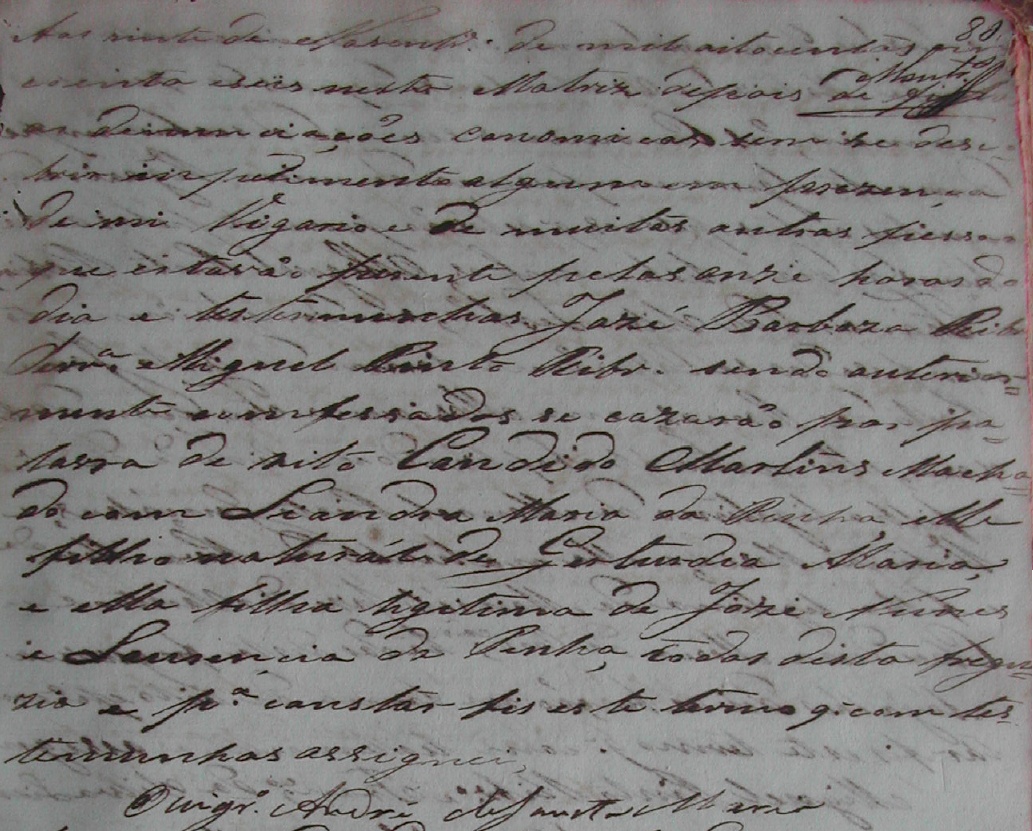 80.
Aos vinte de Novembr.º de mil oito centos sin
coenta e seis nesta Matriz depois de
as denunciações canonicas sem se desc
brir impedimento algum em prezença
de mi Vigario e de muitas outras pessoas
que estavão prezente pelas onze horas do
dia e testemunhas José Barboza Ribr
Miguel Pinto Ribr. sendo anterior=
mente comfessados se cazarão por pa=
lavra de rito Candido Martins Macha
do com Liandra Maria da Penha, elle
filho naturál de Gerturdia Maria,
e ella filha ligitima de Joze Nunes
e Laurencia da Penha, todos desta fregue=
zia e p.ª constár fis este termo q. com tes=
temunhas assignei,
O vigr.º André de Santa Maria